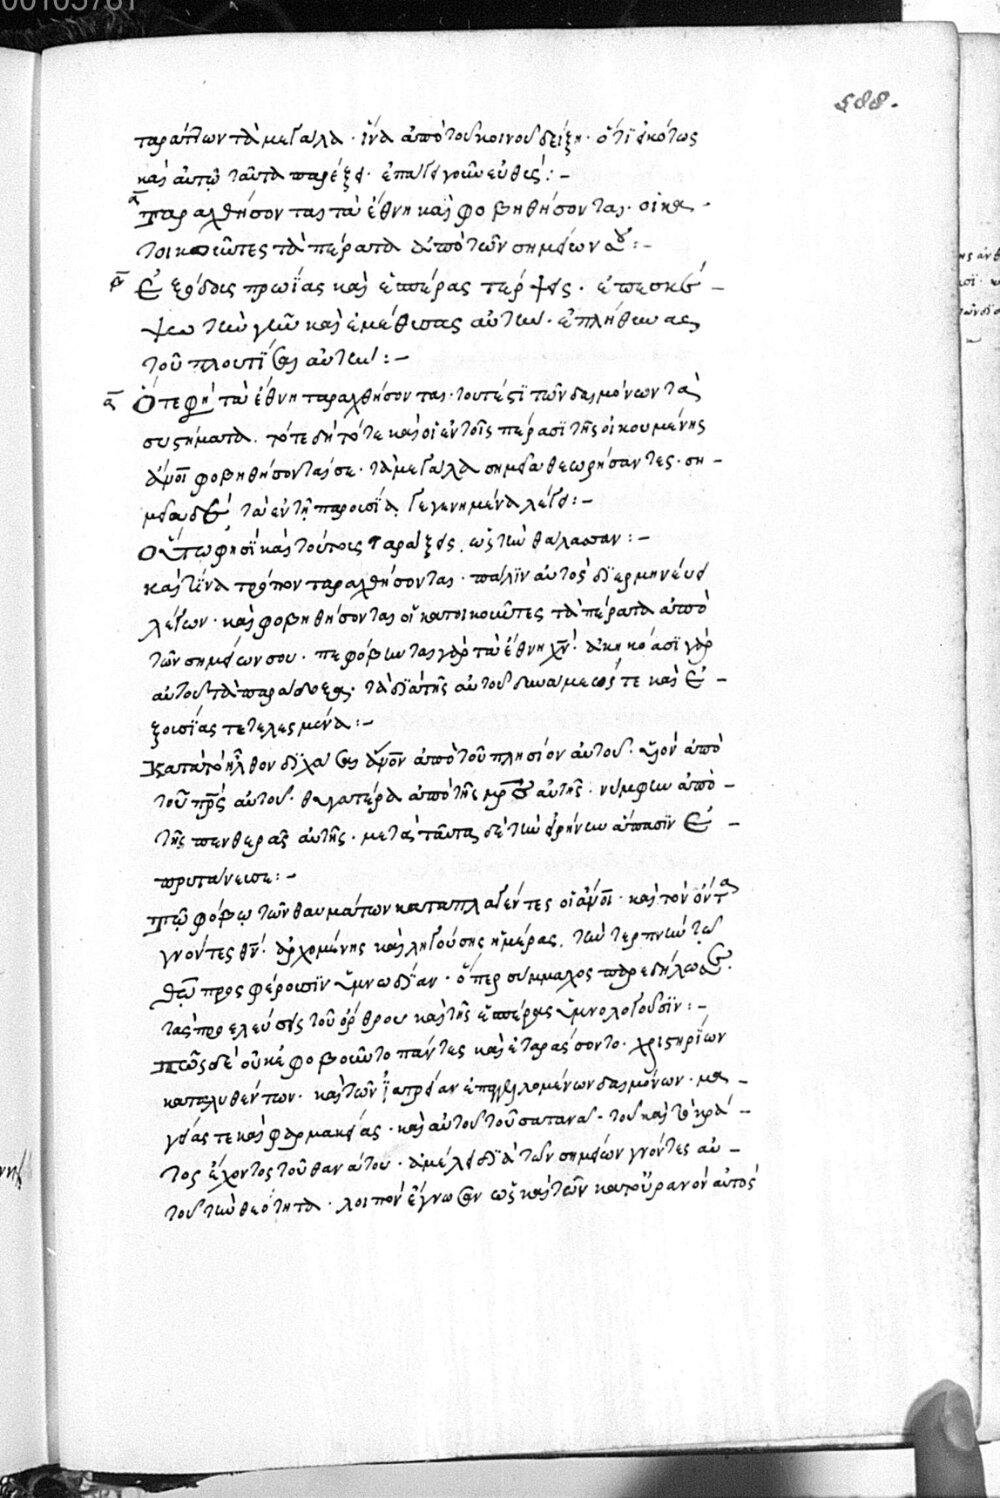 00105781
588.
ταράττων τὰ μεγάλα · ἵνα ἀπὸ τοῦ κοινοῦ δείξῃ · ὅτι εἰκότως
καὶ αὐτῷ ταῦτα παρέξει · ἐπάγει γοῦν εὐθύς : –
α Ταραχθήσονται τὰ ἔθνη καὶ φοβηθήσονται · οἱ κα
τοικοῦντες τὰ πέρατα ἀπὸ τῶν σημείων σου : –
β Ἐξόδοις πρωΐας καὶ ἑσπέρας τέρψεις · ἐπεσκέ –
ψω τὴν γῆν καὶ ἐμέθυσας αὐτήν · ἐπλήθυνας
τοῦ πλουτίσαι αὐτήν : –
α Ὅτε φη τὰ ἔθνη ταραχθήσονται · τουτέστι τῶν δαιμόνων τὰ
συστήματα · τότε δὴ τότε καὶ οἱ ἐν τοῖς πέρασι τῆς οἰκουμένης
ἄνοι φοβηθήσονταί σε · τὰ μεγάλα σημεῖα θεωρήσαντες · ση –
μεῖα δὲ τὰ ἐν τῇ παρουσίᾳ γεγενημένα λέγει : –
Οὕτω φησὶ καὶ τούτοις ταράξεις, ὡς τὴν θάλασσαν : –
καὶ τίνα τρόπον ταραχθήσονται · πάλιν αὐτὸς διερμηνεύει
λέγων · καὶ φοβηθήσονται οἱ κατοικοῦντες τὰ πέρατα ἀπὸ
τῶν σημείων σου · πεφόβηνται γὰρ τὰ ἔθνη χν · ἀκηκόασι γὰρ
αὐτοῦ τὰ παράδοξα · τὰ διὰ τῆς αὐτοῦ δυνάμεώς τε καὶ ἐ –
ξουσίας τετελεσμένα : –
Κατὰ τὸ ἦλθον διχάσαι ἄνον ἀπὸ τοῦ πλησίον αὐτοῦ · υἱὸν ἀπὸ
τοῦ πρς αὐτοῦ · θυγατέρα ἀπὸ τῆς μρς αὐτῆς · νύμφην ἀπὸ –
τῆς πενθερᾶς αὐτῆς · μετὰ ταῦτα δὲ τὴν εἰρήνην ἅπασιν ἐ –
πρυτάνευσε : –
Τῷ φόβῳ τῶν θαυμάτων καταπλαγέντες οἱ ἄνοι · καὶ τὸν ὄντα
γνόντες θν · ἀρχομένης καὶ ληγούσης ἡμέρας, τὴν τερπνὴν τῷ
θῷ προσφέρουσιν ὑμνωδίαν · ὅπερ σύμμαχος παρεδήλωσε ·
τὰς προελεύσεις τοῦ ὄρθρου καὶ τῆς ἑσπέρας ὑμνολογοῦσιν : –
Πῶς δὲ οὐκ ἐφοβοῦντο πάντες καὶ ἐταράσσοντο · χρηστηρίων
καταλυθέντων · καὶ τῶν ἰατρείαν ἐπαγγελομένων δαιμόνων · μα –
γείας τε καὶ φαρμακείας · καὶ αὐτοῦ τοῦ σατανᾶ · τοῦ καὶ τὸ κρά –
τος ἔχοντος τοῦ θανάτου · ἀμέλει διὰ τῶν σημείων γνόντες αὐ –
τοῦ τὴν θεότητα · λοιπὸν ἔγνωσαν ὡς καὶ τῶν κατ οὐρανὸν αὐτὸς